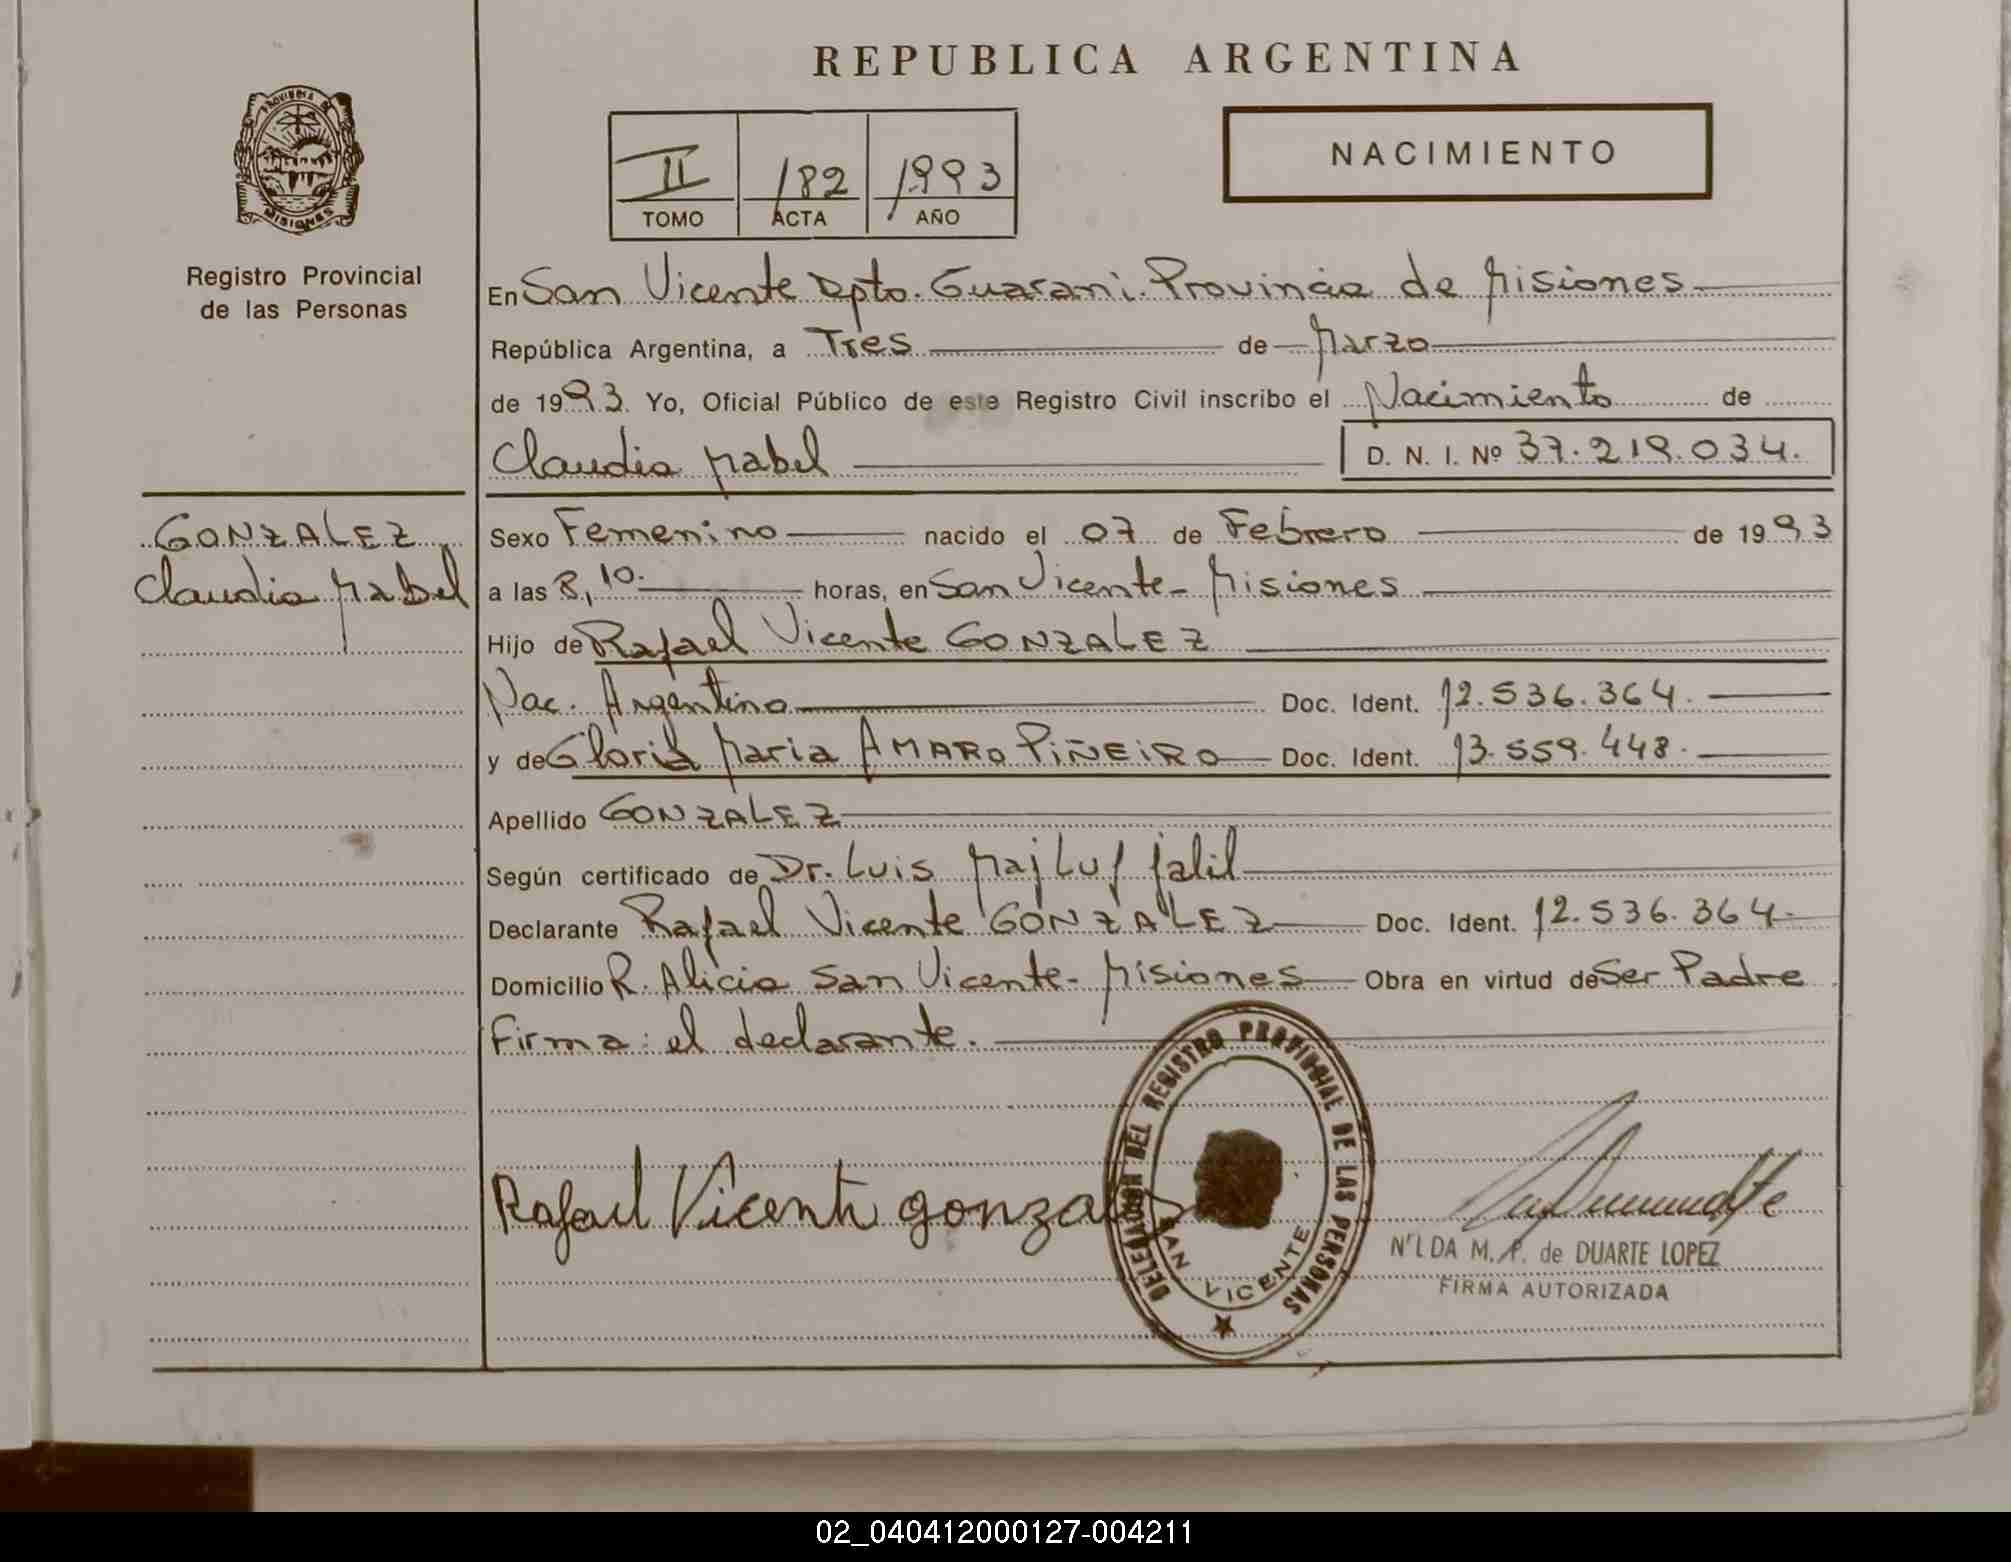 REPUBLICA ARGENTINA
PROVINCIA DE
MISIONES
Registro Provincial
de las Personas
II 182 1993
TOMO ACTA AÑO
NACIMIENTO
En San Vicente Dpto. Guarani. Provincia de Misiones
República Argentina, a Tres de Marzo
de 1993. Yo, Oficial Público de este Registro Civil inscribo el Nacimiento de
Claudia Mabel D. N. I. Nº 37.219.034.
GONZALEZ
Claudia Mabel
Sexo Femenino nacido el 07 de Febrero de 1993
a las 8,10. horas, en San Vicente - Misiones
Hijo de Rafael Vicente GONZALEZ
Nac. Argentino Doc. Ident. 12.536.364.
y de Gloria Maria AMARO PIÑEIRO Doc. Ident. 13.559.448.
Apellido GONZALEZ
Según certificado de Dr. Luis Majluf Jalil
Declarante Rafael Vicente GONZALEZ Doc. Ident. 12.536.364
Domicilio R. Alicia San Vicente - Misiones Obra en virtud de Ser Padre
Firma: el declarante.
Rafael Vicente gonzalez
DELEGACION DEL REGISTRO PROVINCIAL DE LAS PERSONAS
SAN VICENTE
NILDA M. P. de DUARTE LOPEZ
FIRMA AUTORIZADA
02_040412000127-004211